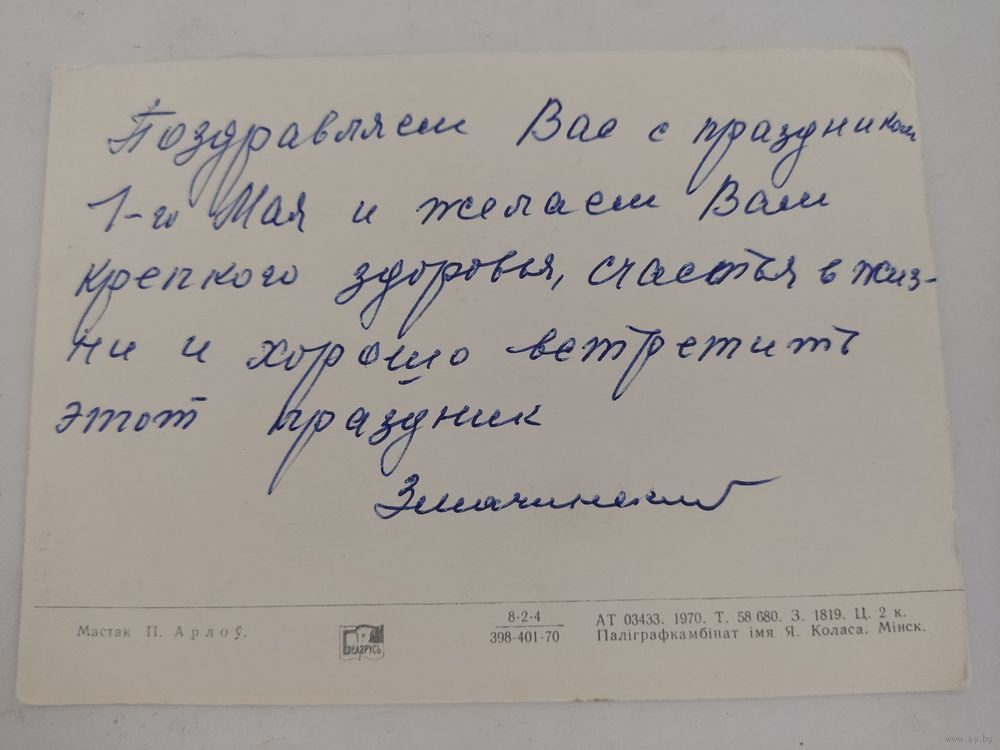 Поздравляем Вас с праздником
1-го Мая и желаем Вам
крепкого здоровья, счастья в жиз-
ни и хорошо встретить
этот праздник
Мастак П. Арлоў.
Беларусь
8-2-4
398-401-70
АТ 03433. 1970. Т. 58 680. З. 1819. Ц. 2 к.
Паліграфкамбінат імя Я. Коласа. Мінск.
www.ay.by